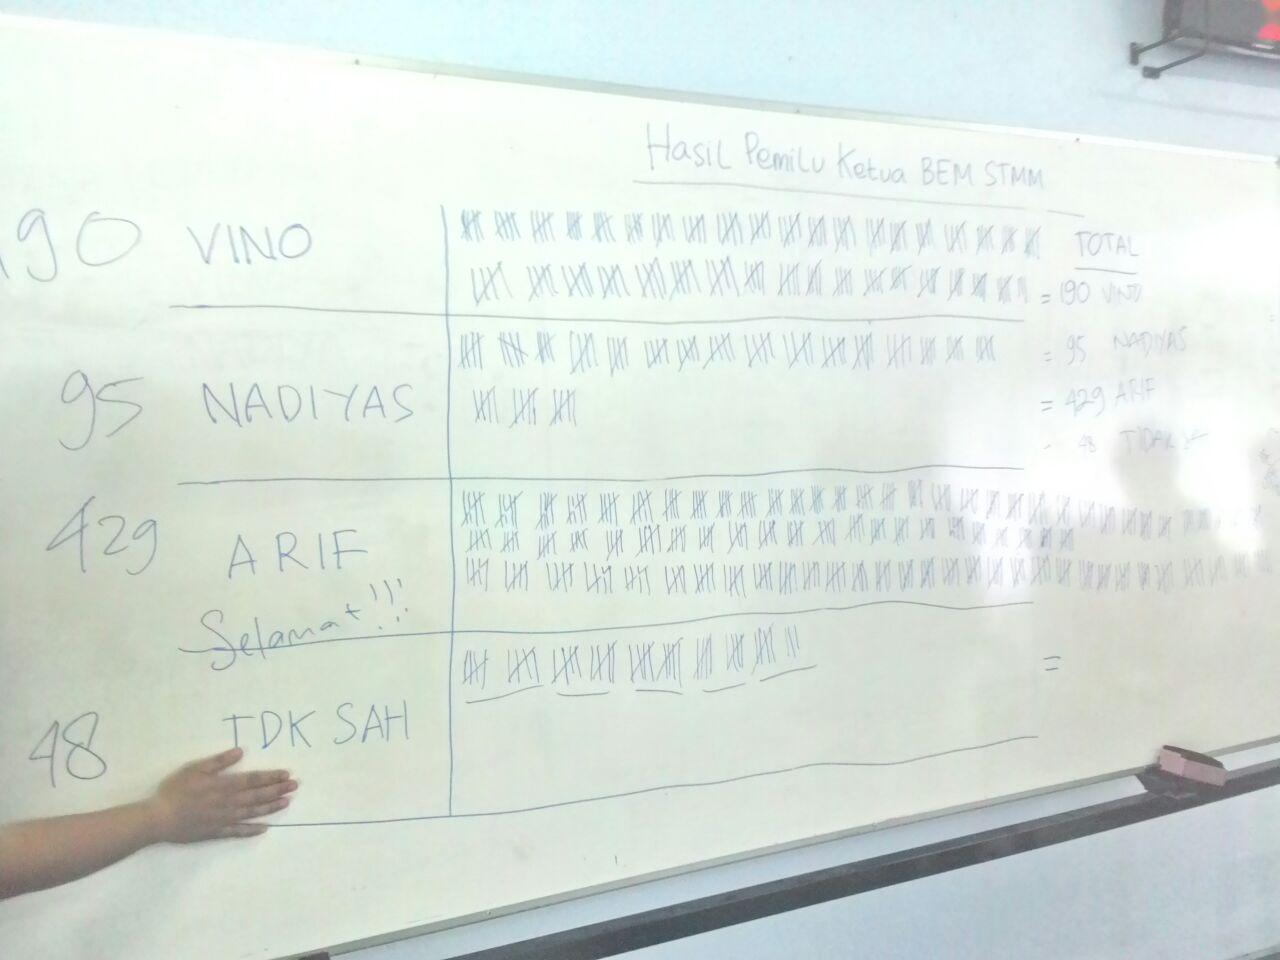 Hasil Pemilu Ketua BEM STMM
190 VINO
95 NADIYAS
429 ARIF
Selamat!!!
48 TDK SAH
TOTAL
= 190 VINO
= 95 NADIYAS
= 429 ARIF
48 TIDAK
=